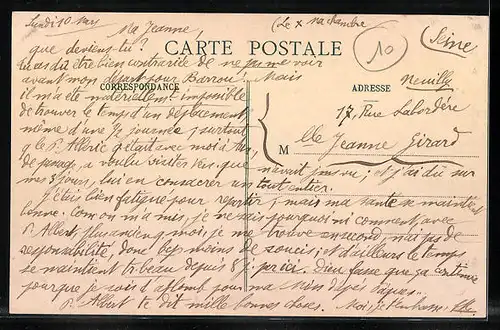 Lundi 10 Mars
(Le X Ma chambre
Ma Jeanne,
(Seine)
10
que deviens-tu?
CARTE POSTALE
tu as dû être bien contrariée de ne me voir
avant mon départ pour Mais
CORRESPONDANCE
ADRESSE
Neuilly
il m'a été matériellement impossible
de trouver le temps d'un déplacement
17, Rue Labordère
même d'une journée, surtout
Mlle Jeanne Girard
que le P. était avec moi à
de passage, a voulu visiter que
n'avait pas vu, et j'ai dû sur
mes 3 jours, lui en consacrer un tout entier.
J'étais bien fatiguée pour repartir, mais ma santé se maintient
bonne. Com on m'a mis, je ne sais pourquoi ni comment, avec
P. Albert, plus ancien q. moi, je me trouve en second, n'ai pas de
responsabilité, donc bcp moins de soucis; et d'ailleurs le temps
se maintient tr. beau depuis 8 j. ici. Dieu fasse que ça continue
pour que je sois d'aplomb pour ma
P. Albert te dit mille bonnes choses. Moi, je